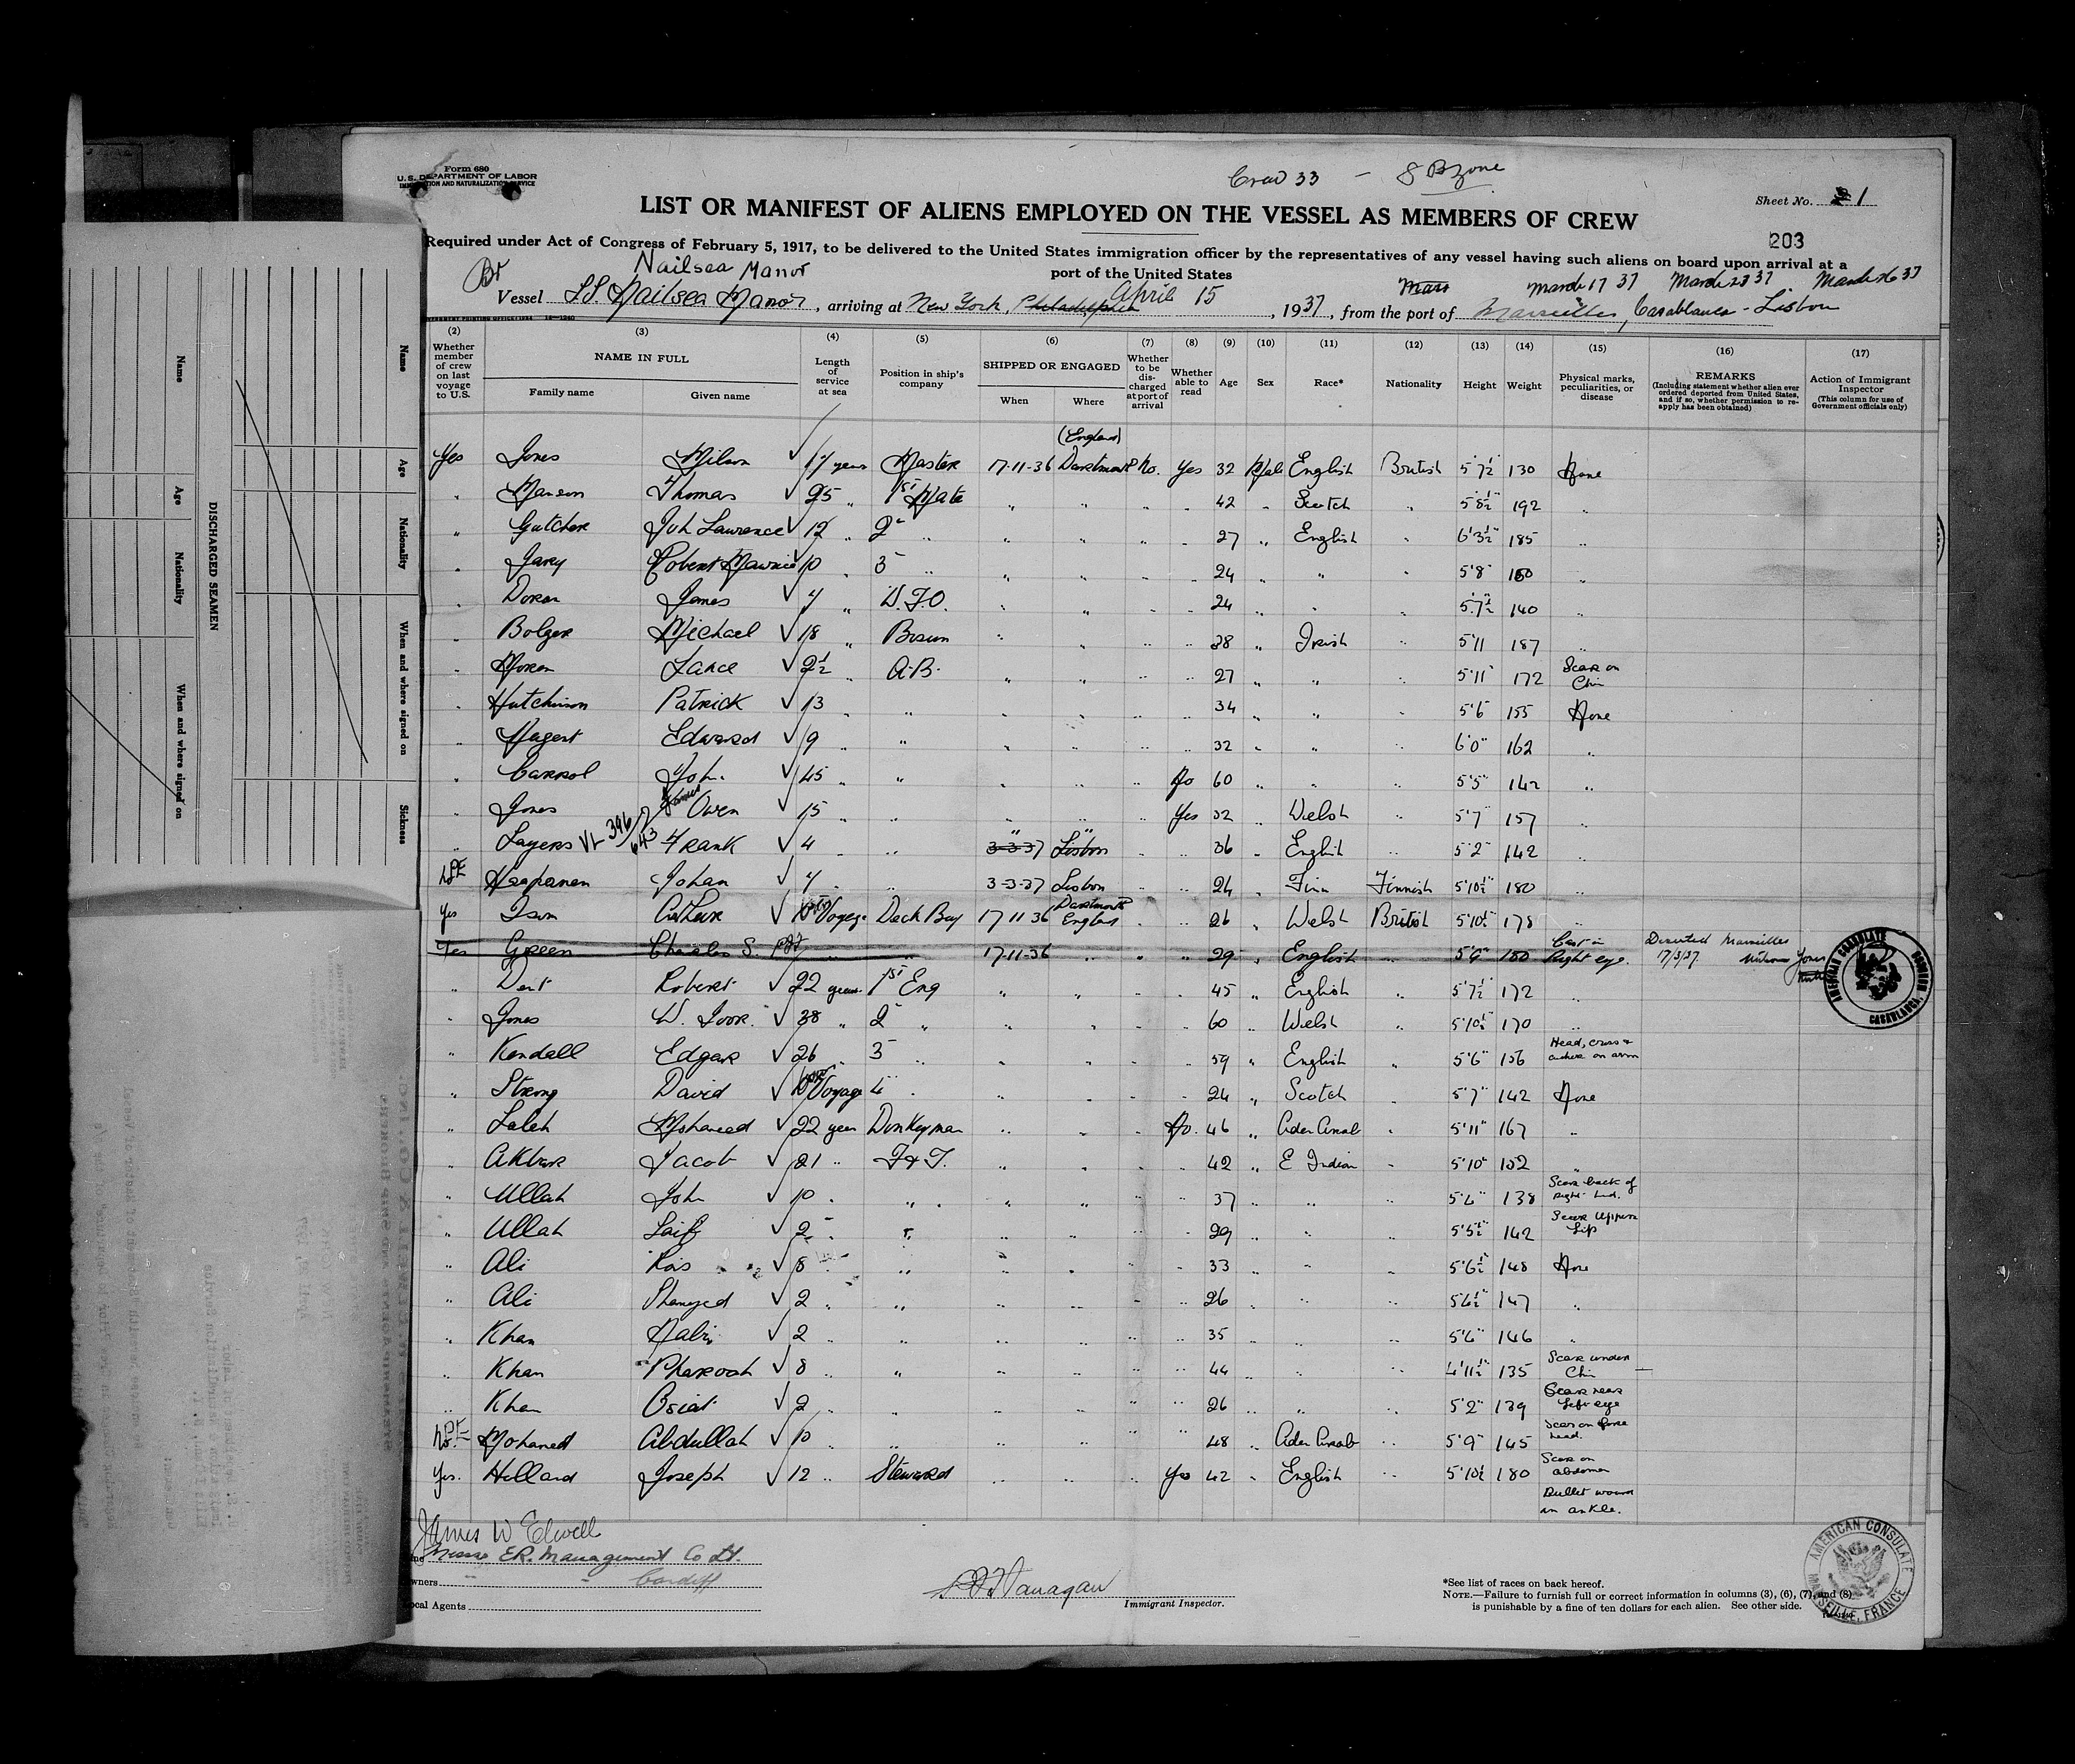 Form 680
U. S. DEPARTMENT OF LABOR
IMMIGRATION AND NATURALIZATION SERVICE
Crew 33 -
Sheet No. 1
LIST OR MANIFEST OF ALIENS EMPLOYED ON THE VESSEL AS MEMBERS OF CREW
203
Required under Act of Congress of February 5, 1917, to be delivered to the United States immigration officer by the representatives of any vessel having such aliens on board upon arrival at a
port of the United States
Br Nailsea Manor
March 17 37 March 23 37 March 26 37
Vessel S.S. Nailsea Manor, arriving at New York, Philadelphia April 15, 1937, from the port of Marseilles, Casablanca - Lisbon
(2) (3) (4) (5) (6) (7) (8) (9) (10) (11) (12) (13) (14) (15) (16) (17)
Whether member of crew on last voyage to U.S.
NAME IN FULL
Family name
Given name
Length of service at sea
Position in ship's company
SHIPPED OR ENGAGED
When
Where
Whether to be discharged at port of arrival
Whether able to read
Age
Sex
Race*
Nationality
Height
Weight
Physical marks, peculiarities, or disease
REMARKS
(Including statement whether alien ever ordered deported from United States, and if so, whether permission to re-apply has been obtained)
Action of Immigrant Inspector
(This column for use of Government officials only)
(England)
Yes Jones Wilson 17 years Master 17-11-36 Dartmouth No. Yes 32 Male English British 5'7½ 130 None
" Manson Thomas 25 " 1st Mate " " " " 42 " Scotch " 5'8½" 192 "
" Gutcher Joh Lawrence 12 " 2" " " " " " 27 " English " 6'3½" 185 "
" Jary Robert 10 " 3 " " " " " 24 " " " 5'8" 160 "
" Doran James 4 " W.T.O. " " " " 24 " " " 5'7½ 140 "
" Bolger Michael 18 " Bosun " " " " 38 " Irish " 5'11 187 "
" Moran Lance 2½ " A.B. " " " " 27 " " " 5'11" 172 Scar on Chin
" Hutchinson Patrick 13 " " " " " " 34 " " " 5'6 155 None
" Edward 9 " " " " " " 32 " " " 6'0" 162 "
" Carrol John 45 " " " " " No 60 " " " 5'5" 142 "
" Jones James Owen 15 " " " " " Yes 32 " Welsh " 5'7" 157 "
" Layers VL-396/643 Frank 4 " " 3-3-37 Lisbon " " 36 " English " 5'2" 142 "
Haapanen Johan 4 " " 3-3-37 Lisbon " " 24 " Finn Finnish 5'10½" 180 "
Yes Arthur Voyage Deck Boy 17 11 36 Dartmouth England " " 26 " Welsh British 5'10½" 178 "
Yes Green Charles S. " " 17-11-36 " " " 29 " English " 5'9" 180 Cast in Right eye. Deserted Marseilles 17/3/37.
" Dent Robert 22 years 1st Eng " " " " 45 " English " 5'7½" 172 "
" Jones W. 38 " 2" " " " " " 60 " Welsh " 5'10½" 170 "
" Kendall Edgar 26 " 3 " " " " " 59 " English " 5'6" 156 Head, cross & anchor on arm
" Strong David Voyage 4 " " " " " 24 " Scotch " 5'7" 142 None
" Saleh Mohamed 22 year Donkeyman " " " No. 46 " Aden Arab " 5'11" 167 "
" Akbar Jacob 21 " F&T. " " " " 42 " E Indian " 5'10" 152 "
" Ullah John 10 " " " " " " 37 " " " 5'4" 138 Scar back of right hand.
" Ullah Saif 2 " " " " " " 29 " " " 5'5½" 142 Scar Upper Lip
" Ali 8 " " " " " " 33 " " " 5'6½" 148 None
" Ali 2 " " " " " " 26 " " " 5'6½" 147 "
" Khan Nabi 2 " " " " " " 35 " " " 5'4" 146 "
" Khan Pharoah 8 " " " " " " 44 " " " 4'11½" 135 Scar under Chin
" Khan 2 " " " " " " 26 " " " 5'2" 139 Scar near Left eye
Mohamed Abdullah 10 " " " " " " 48 " Aden Arab " 5'9" 145 Scar on forehead.
Yes. Holland Joseph 12 " Steward " " " Yes 42 " English " 5'10½ 180 Scar on abdomen
Bullet wound in ankle.
James W Elwell
Messrs E.R. Management Co Ld.
Owners Cardiff
Local Agents
Flanagan
Immigrant Inspector.
*See list of races on back hereof.
NOTE.—Failure to furnish full or correct information in columns (3), (6), (7), and (8)
is punishable by a fine of ten dollars for each alien. See other side.
AMERICAN CONSULATE
MARSEILLE, FRANCE
AMERICAN CONSULATE
CASABLANCA, MOROCCO
DISCHARGED SEAMEN
Name
Age
Nationality
When and where signed on
Name
Age
Nationality
When and where signed on
Sickness